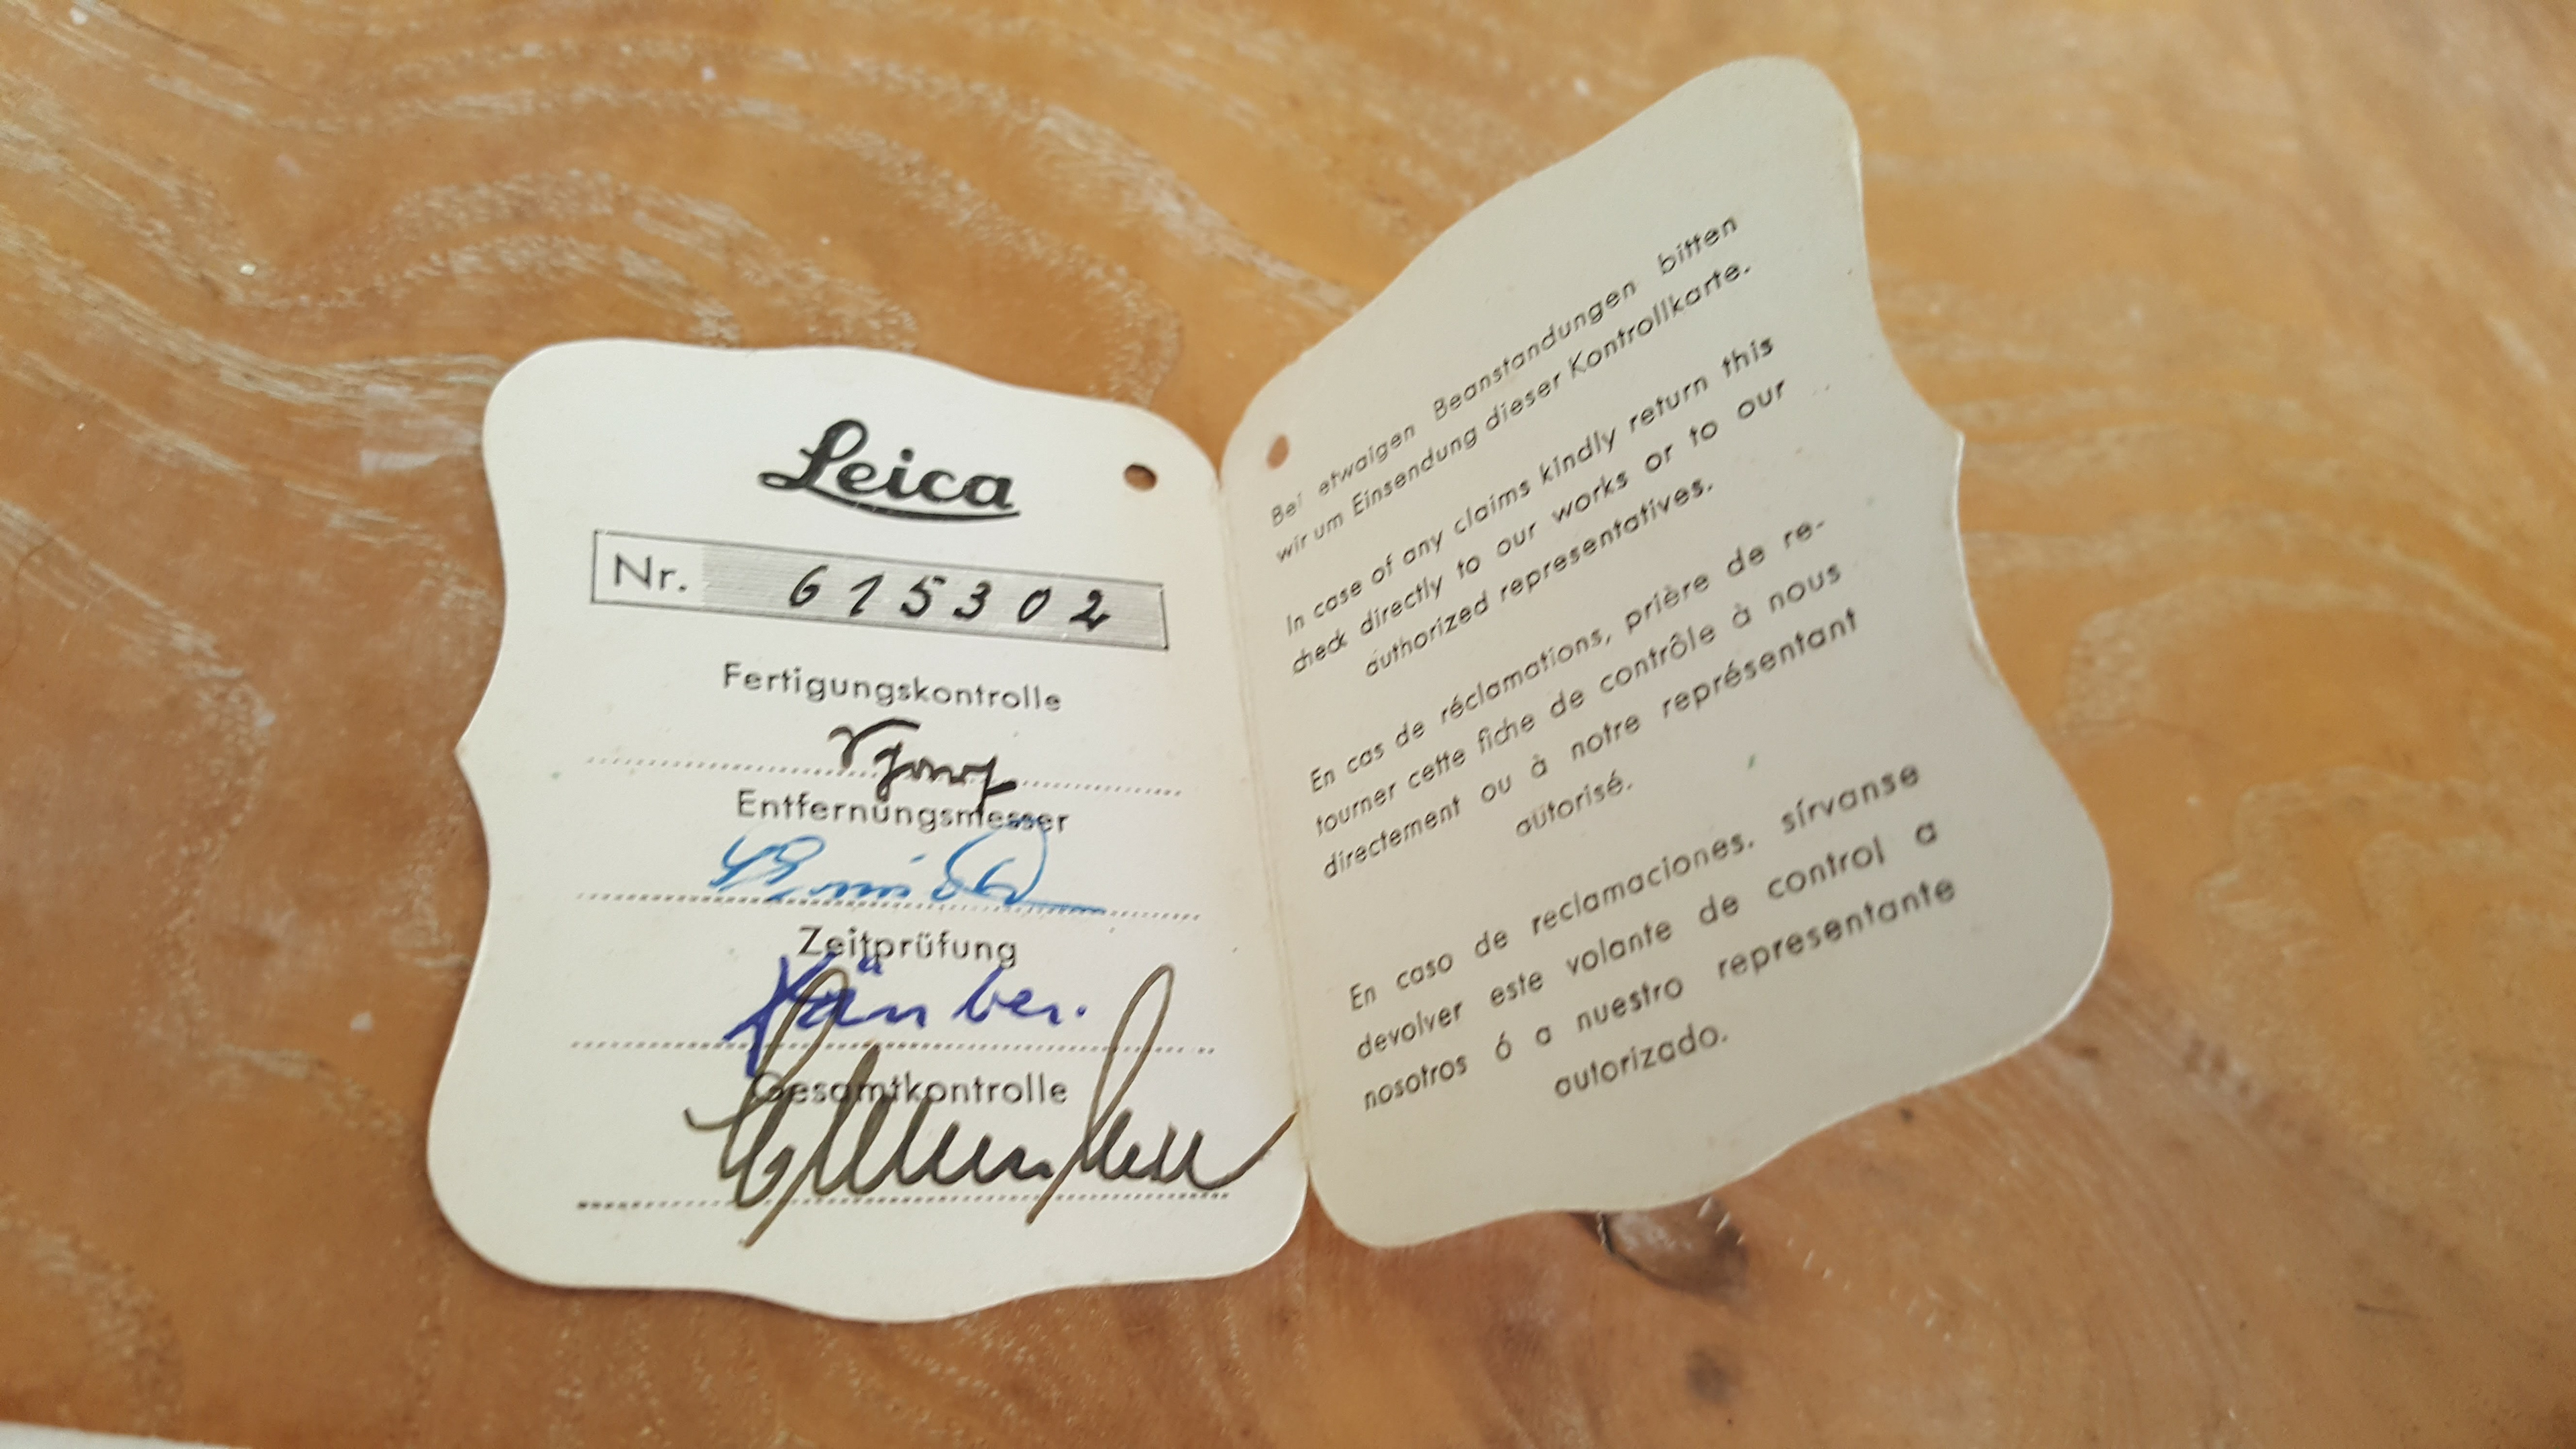 Leica
Nr. 615302
Fertigungskontrolle
Entfernungsmesser
Zeitprüfung
Gesamtkontrolle
Bei etwaigen Beanstandungen bitten
wir um Einsendung dieser Kontrollkarte.
In case of any claims kindly return this
check directly to our works or to our
authorized representatives.
En cas de réclamations, prière de re-
tourner cette fiche de contrôle à nous
directement ou à notre représentant
autorisé.
En caso de reclamaciones. sírvanse
devolver este volante de control a
nosotros ó a nuestro representante
autorizado.